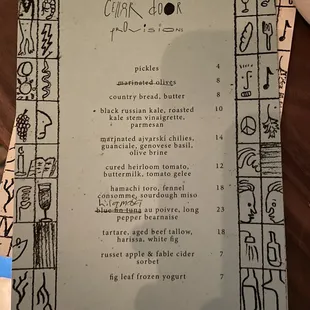 cellar door
provisions
pickles 4
marinated olives 8
country bread, butter 8
black russian kale, roasted 10
kale stem vinaigrette,
parmesan
marinated ajvarski chilies, 14
guanciale, genovese basil,
olive brine
cured heirloom tomato, 12
buttermilk, tomato gelee
hamachi toro, fennel 18
consomme, sourdough miso
blue fin tuna au poivre, long 23
pepper bearnaise
tartare, aged beef tallow, 18
harissa, white fig
russet apple & fable cider 7
sorbet
fig leaf frozen yogurt 7